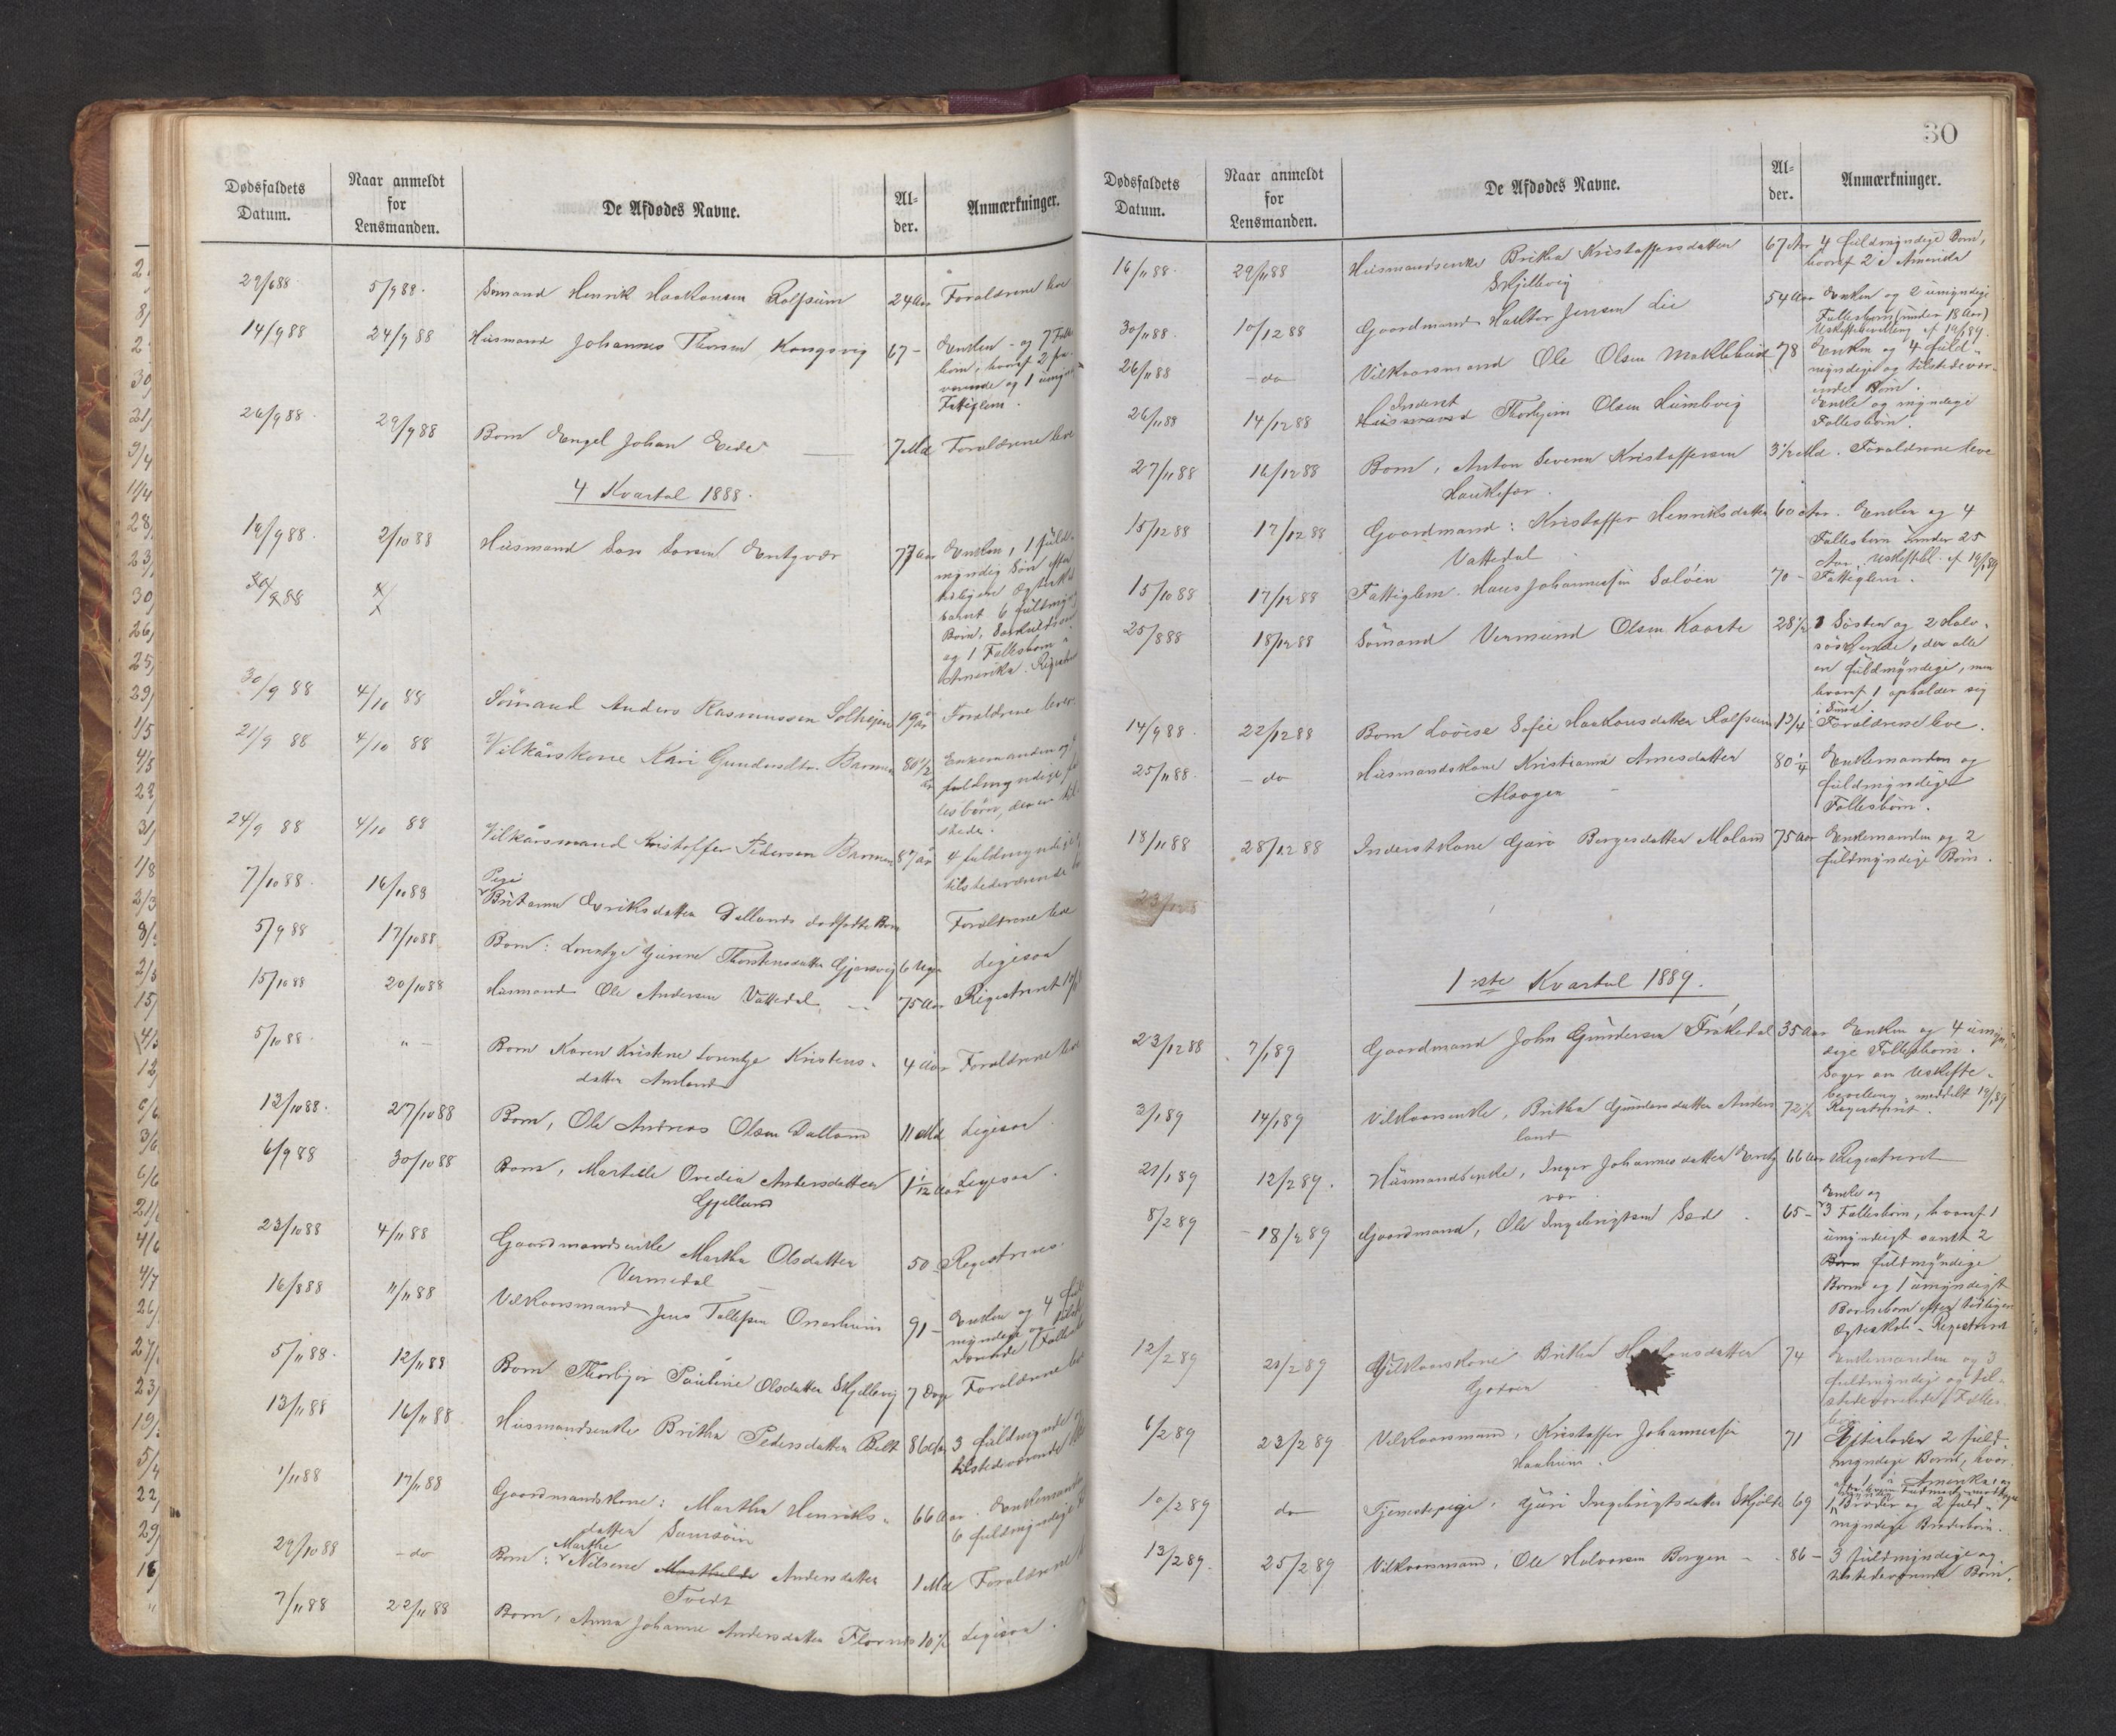 Dødsfaldets
Datum.
Naar anmeldt
for
Lensmanden.
De Afdødes Navne.
Al-
der.
Anmærkninger.
29/6 88. 5/9 88. Sømand Henrik Haakonsen Rolfsum 24 Aar Forældrene leve
14/9 88 24/9 88 Husmand Johannes Thorsen Kongsvig 67 - Enken - og 7 Fælles
børn, hvoraf 2 fra
værende og 1 umynd
Fattiglem.
26/9 88. 29/9 88 Barn Engel Johan Eide 7 Md Forældrene leve
4 Kvartal 1888.
19/9 88. 2/10 88 Husmand Lars Larsen Entgvær 77 Aar Enken, 1 fuld-
myndig Søn efter
tidligere Ægteskab
samt 6 fuldmyndige
Børn, Særkuldsørn
og 1 Fællesbarn i
Amerika. Registre
30/9 88
30/9 88 4/10 88 Sömand Anders Rasmussen Solheim 19 år Forældrene lever
21/9 88 4/10 88 Vilkårskone Kari Gundersdtr. Barmen 80 1/2 år Enkemanden og
fuldmyndige fæl
lesbørn, der er til
stede.
24/9 88 4/10 88 Vilkårsmand Kristoffer Pedersen Barmen 87 år 4 fuldmyndige
tilstedeværende
7/10 88. 16/10 88 Pige
Britanna Eriksdatter Dallands dødfødte Barn Forældrene leve
5/9 88 17/10 88 Barn: Lorentze Gurine Thorstensdatter Gjørsvig 6 Uger Ligesaa
15/10 88 20/10 88 Husmand Ole Andersen Vattedal 75 Aar Registreret
5/10 88. " - Barn Karen Kristine Lorentze Kristens-
datter Amland 4 Aar Forældrene leve
12/10 88. 27/10 88 Barn, Ole Andreas Olsen Dalland 11 Md Ligesaa.
6/9 88 30/10 88 Barn, Martille Ovedia Andersdatter
Gjelland 1 1/12 Aar Ligesaa.
23/10 88 4/11 88 Gaardmandsenke Martha Olsdatter
Vermedal 50 - Registreres
16/8 88 11/11 88 Vilkaarsmand Jens Tollefsen Onarheim 91 - Enken og 4 fuld
myndige og tilste
værende Fælles
5/11 88. 12/11 88 Barn Thorbjør Pauline Olsdatter Skjellevig 7 Dage Forældrene leve
13/11 88 16/11 88 Husmandsenke Britha Pedersdatter Belt 86 Aar 3 fuldmyndige og
tilstedeværende
1/11 88 17/11 88 Gaardmandskone: Martha Henriks-
datter Samsøin 66 Aar. Enkemanden
6 fuldmyndige
29/10 88 - do Barn: Marthe Nilsene Andersdatter
Tvedt 1 Md Forældrene
7/11 88 22/11 88 Barn, Anna Johanne Andersdatter Flornes 10 1/2 Ligesaa.
30
Dødsfaldets
Datum.
Naar anmeldt
for
Lensmanden.
De Afdødes Navne.
Al-
der.
Anmærkninger.
16/11 88. 29/11 88 Husmandsenke Britha Kristoffersdatter
Skjellevig 67 Aar 4 fuldmyndige Børn,
hvoraf 2 i Amerika
30/11 88. 10/12 88 Gaardmand Haktor Jensen Lie 54 Aar Enken og 2 umyndige
Fællesbørn (under 18 Aar)
Uskiftebevilling af 19/1 89.
26/11 88 - do Vilkaarsmand Ole Olsen Møklebust 78 Enken og 4 fuld-
myndige og tilstedevær-
ende Børn.
26/11 88 14/12 88 Inderst
Husmand Thorbjørn Olsen Humbvig Enke og myndige
Fællesbørn.
27/11 88 16/12 88 Barn, Anton Severin Kristoffersen
Haukefær. 3 1/2 Md. Forældrene leve
15/12 88 17/12 88 Gaardmand: Kristoffer Henriksdatter
Vattedal 60 Aar. Enken og 4
Fællesbørn under 25
Aar. Uskiftebl. af 19/1 89
15/10 88 17/12 88 Fattiglem. Hans Johannessen Saløen 70 - Fattiglem.
25/8 88 18/12 88 Sömand Vermund Olsen Kaarte 28 1/2 1 Søster og 2 Halv-
søskende, der alle
ere fuldmyndige, men
hvoraf 1 opholder sig
i
14/9 88. 22/12 88 Barn Lovise Sofie Haakonsdatter Rolfsum 13/4 Forældrene leve.
25/11 88. - do Husmandskone Kristianna Arnesdatter
Haagen 80 1/4 Enkemanden og
fuldmyndige
Fællesbørn.
18/11 88 28/12 88 Inderstkone Guro Børgesdatter Moland 75 Aar Enkemanden og 2
fuldmyndige Børn.
23/12 8
1ste Kvartal 1889.
23/12 88 7/1 89 Gaardmand John Gundersen Frøkedal 35 Aar Enken og 4 umyn-
dige Fællesbørn.
Søger om Uskifte-
bevilling, meddelt 19/1 89
2/1 89 14/1 89 Vilkaarsenke, Britha Gundersdatter Anders
land 72 1/2 Registreret.
21/1 89 12/2 89. Husmandsenke, Inger Johannesdatter Entg
vær. 66 Aar Registreret
8/2 89 - 18/2 89 Gaardmand, Ole Ingebrigtsen Sæd - 65 - Enke og
3 Fællesbørn, hvoraf 1
umyndigt samt 2
Børn fuldmyndige
Børn og 1 umyndigt
Barnebarn efter tidligere
Ægteskab - Registreret
12/2 89 21/2 89 Vilkaarskone Britha Haakonsdatter
Godøen 74 Enkemanden og 3
fuldmyndige og til-
stedeværende Fælles
børn
6/2 89 23/2 89 Vilkaarsmand, Kristoffer Johannessen
Haaheim. 71 Efterlader 2 fuld-
myndige Børn, hvor
i Amerika og
10/2 89 do Tjenestepige, Guri Ingebrigtsdatter Skjølde 69 1 Broder og 2 fuld-
myndige Broderbørn.
13/2 89. 25/2 89 Vilkaarsmand, Ole Halvorsen Borgen - 86 - 3 fuldmyndige og
tilstedeværende Børn.